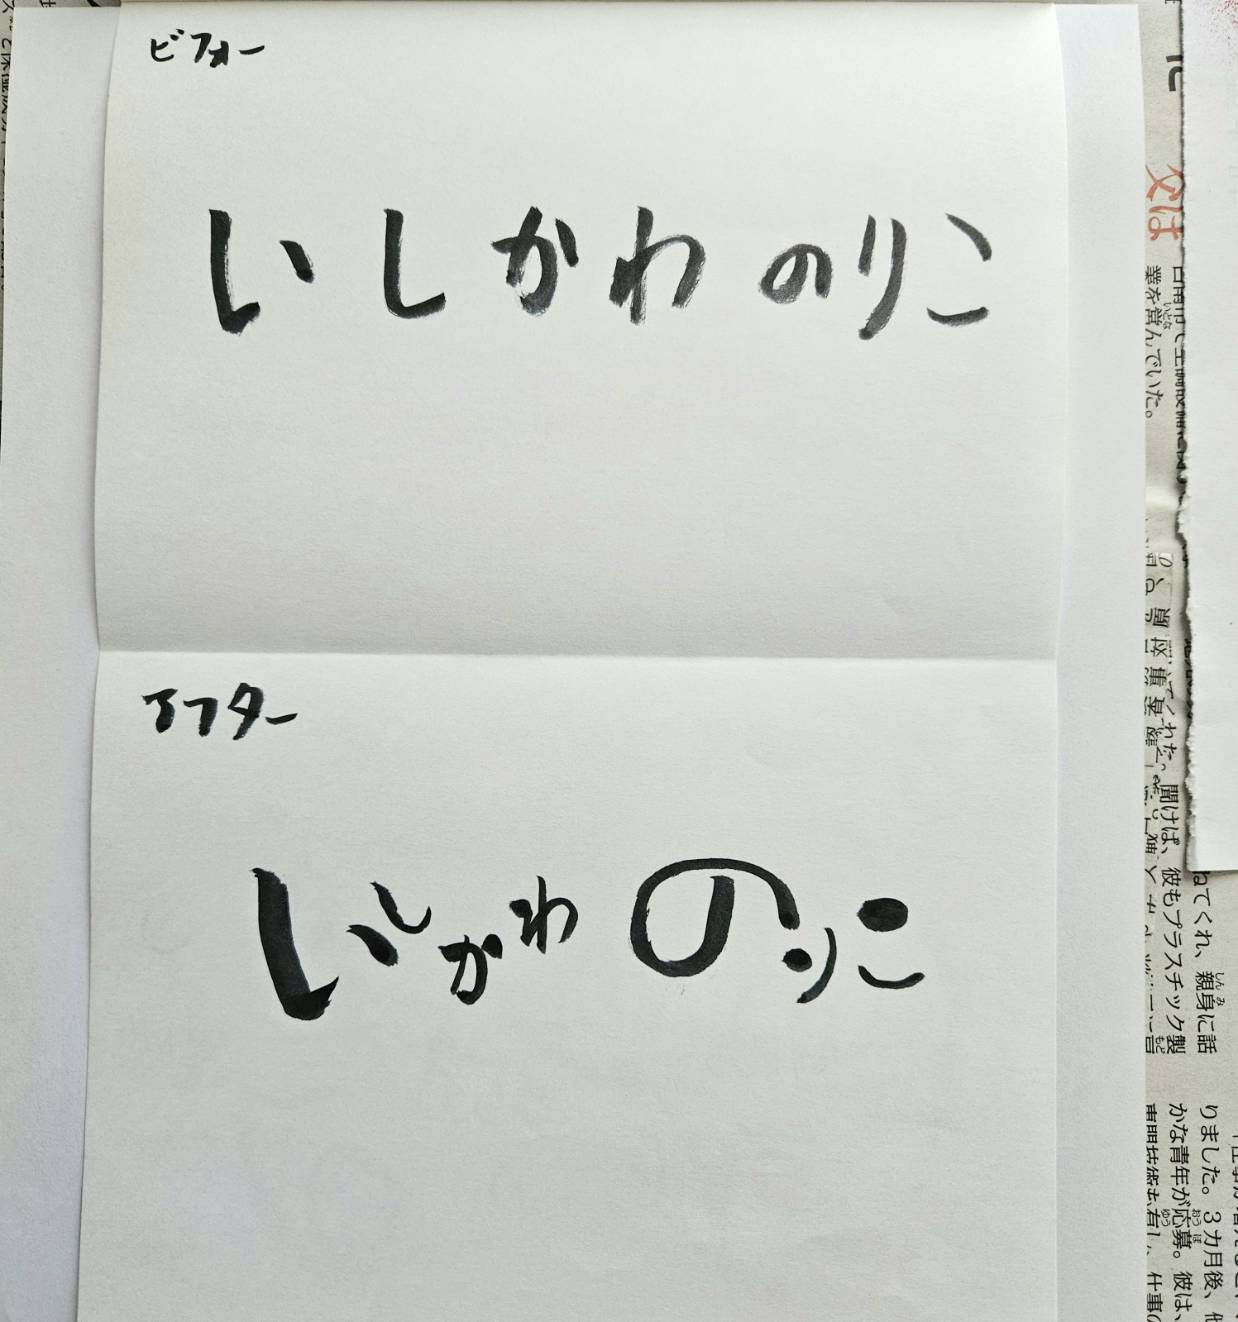 ビフォー
いしかわのりこ
アフター
いしかわのりこ
又は
業を営んでいた。
いとな
ねてくれ、親身に話
しんみ
聞けば、彼もプラスチック製
りました。3カ月後、他
かな青年が応募。彼は、
おうぼ
仕事の